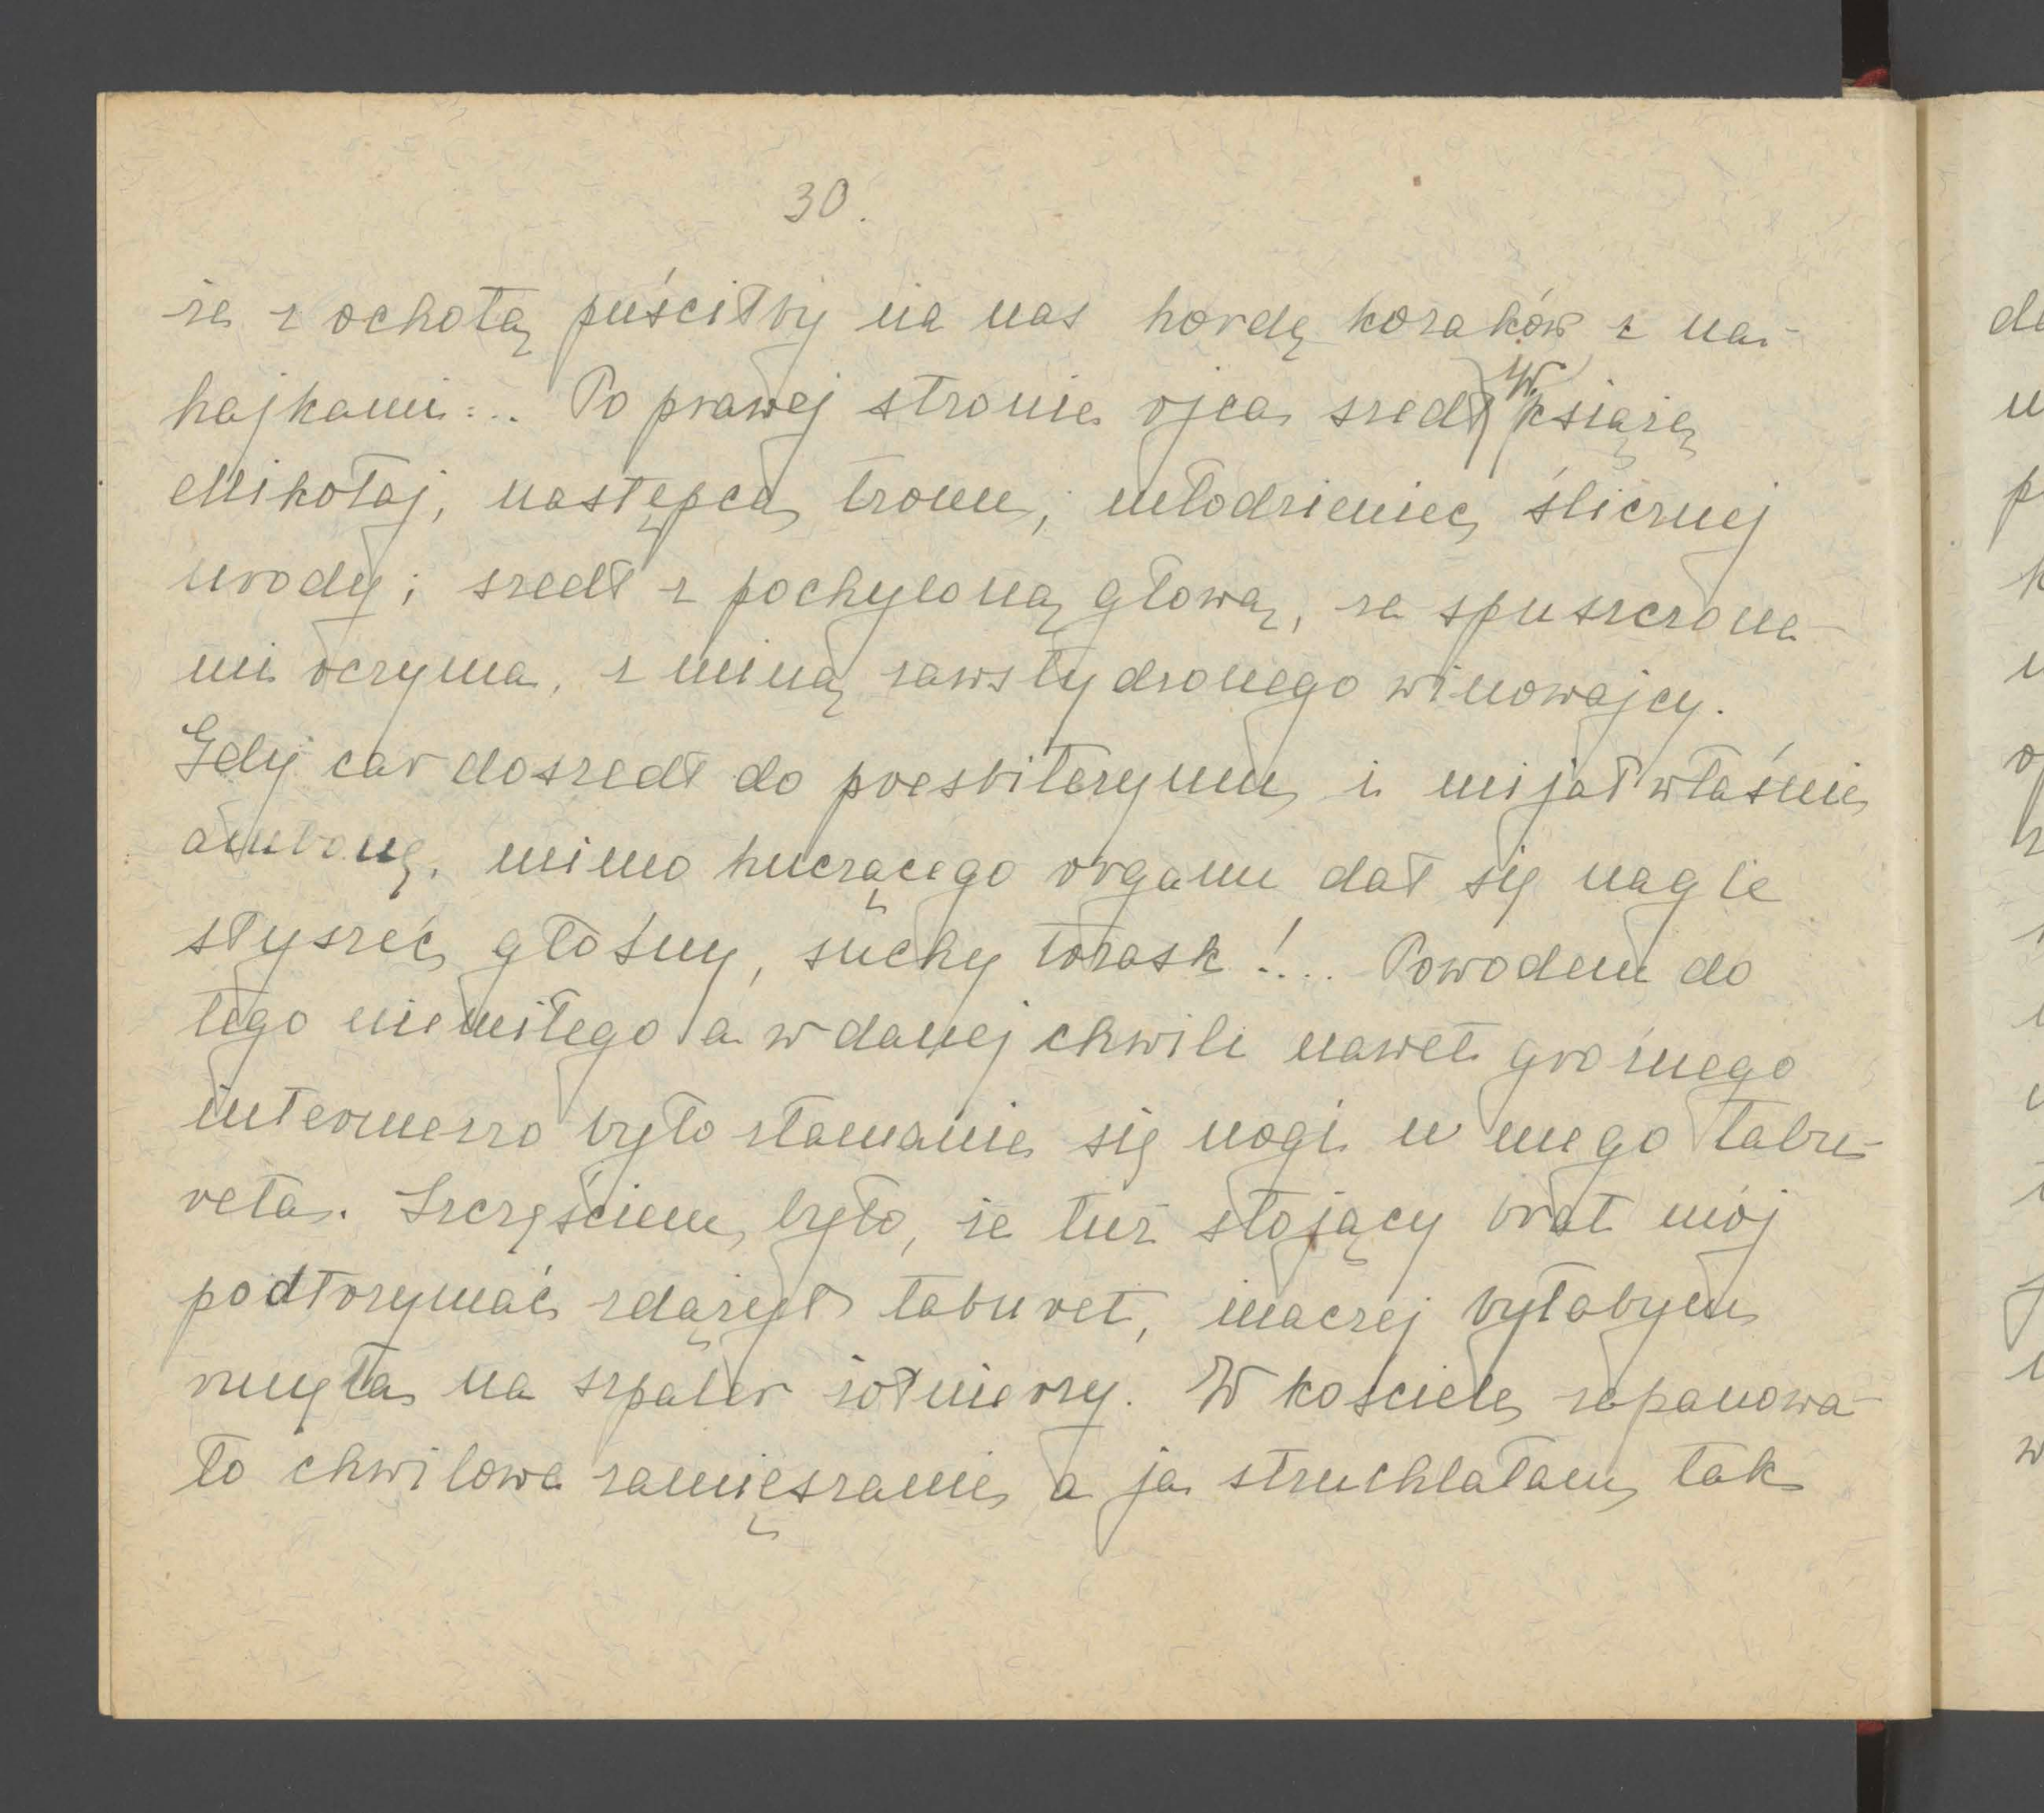 30.
że z ochotą puściłby na nas hordę kozaków z na-
hajkami... Po prawej stronie ojca szedł W. książę
Mikołaj, następca tronu, młodzieniec ślicznej
urody; szedł z pochyloną głową, ze spuszczone-
mi oczyma, z miną zawstydzonego winowajcy.
Gdy car doszedł do presbiteryum i mijał właśnie
ambonę, mimo huczącego organu dał się nagle
słyszeć głośny, suchy trzask!... Powodem do
tego niemiłego a w danej chwili nawet groźnego
intermezzo było złamanie się nogi u mego tabu-
retu. Szczęściem było, że tuż stojący brat mój
podtrzymać zdążył taburet, inaczej byłabym
runęła na szpaler żołnierzy. W kościele zapanowa-
ło chwilowe zamięszanie a ja struchlałam, tak